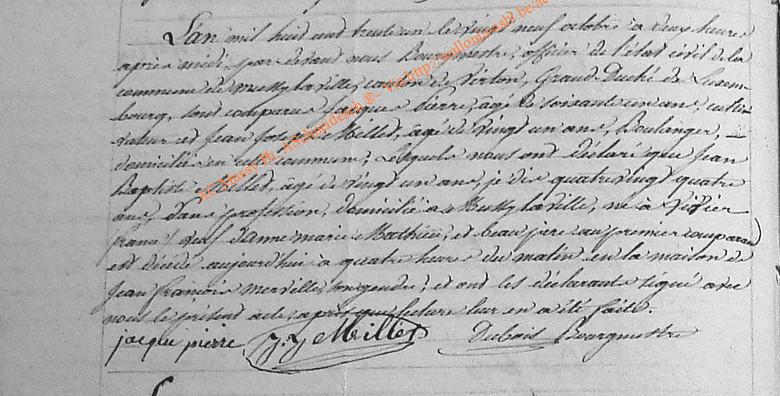 L'an mil huit cent trente un le vingt neuf octobre à deux heures
après midi, par devant nous Bourgmestre, officier de l'état civil de la
commune de Mussy la ville, canton de Virton, Grand-Duché de Luxem-
bourg, sont comparus Jacques Pierre, âgé de soixante un ans, culti-
vateur et Jean Joseph Millet, âgé de vingt un ans, Boulanger,
domiciliés en cette commune, lesquels nous ont déclaré que Jean
Baptiste Millet, âgé de vingt un ans, je dis quatre vingt quatre
ans, sans profession, domicilié à Mussy la ville, né à
france veuf d'anne marie Mathieu, et beau père au premier comparant
est décédé aujourd'hui à quatre heures du matin en la maison de
Jean françois merville, son gendre; et ont les déclarants signé avec
nous le présent acte, après que lecture leur en a été faite.
jacque pierre J. J Millet Dubois Bourgmestre